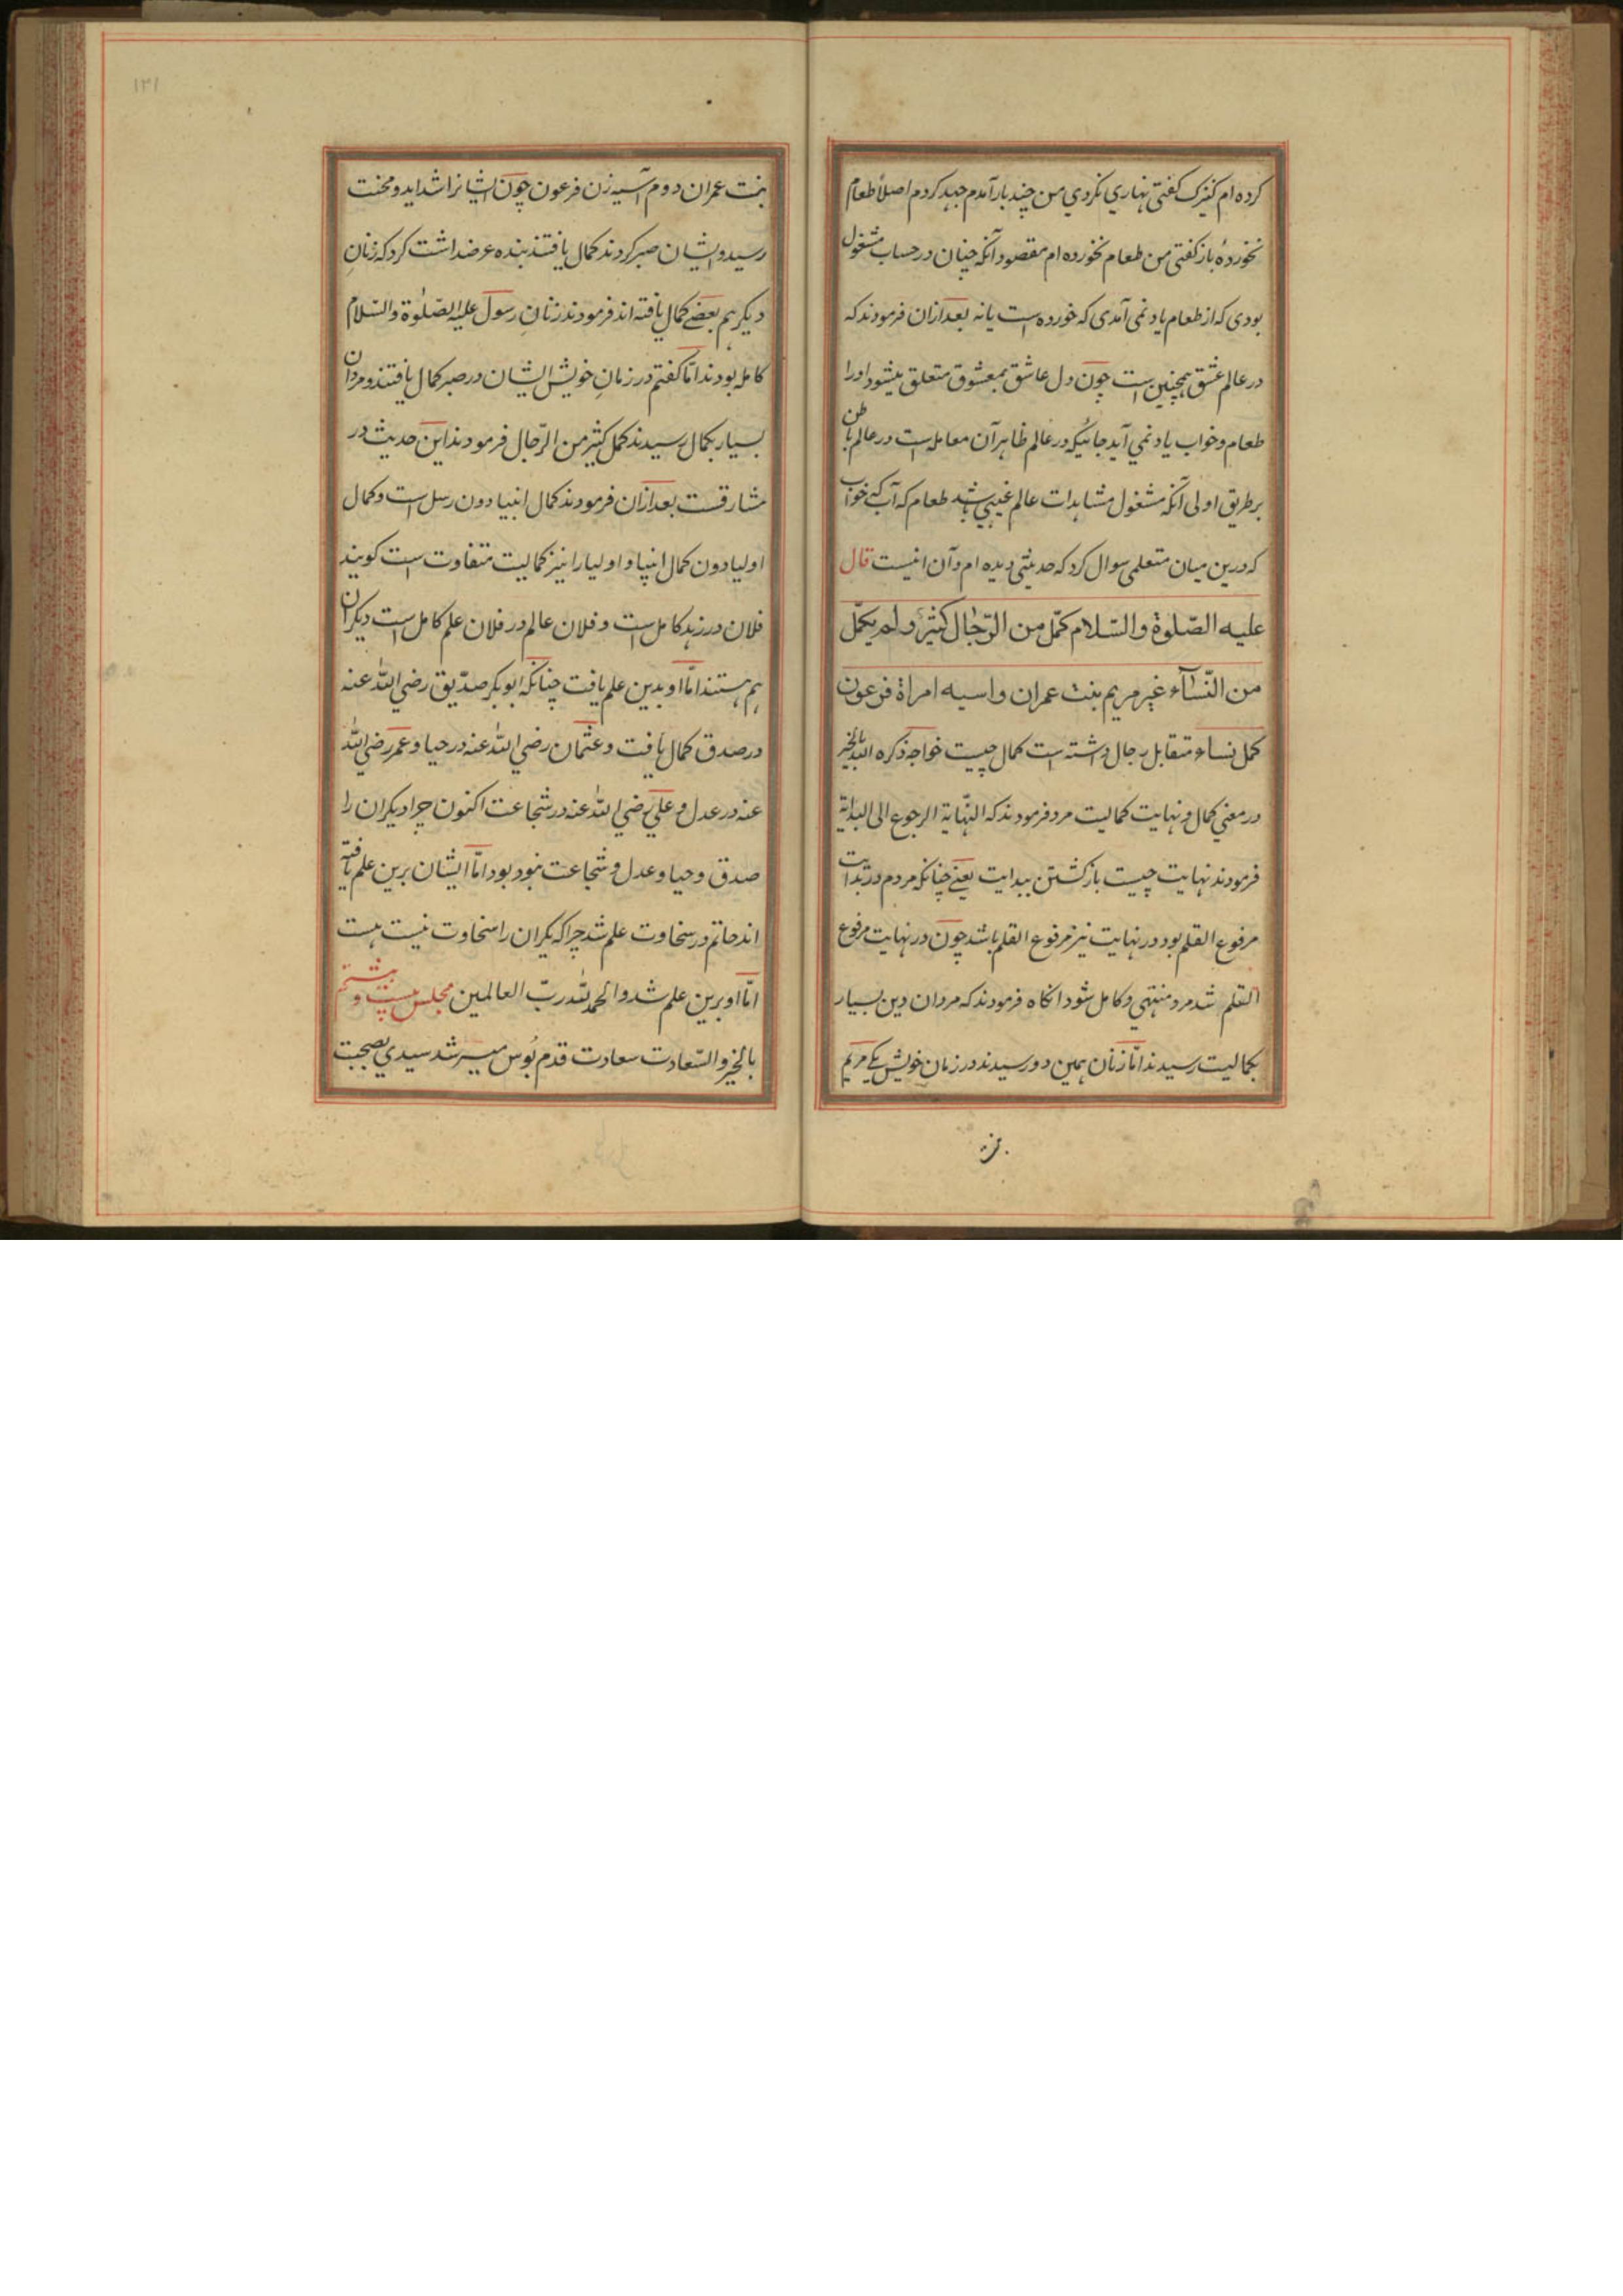 کرده ام کنیزک کفتی نهاری نکردي من چند بار آمدم جهد کردم اصلاً طعام
نخوردهٔ باز کفتی من طعام نخورده ام مقصود آنکه چنان در حساب مشغول
بودی که از طعام یاد نمی آمدی که خورده است یا نه بعد ازان فرمودند که
در عالم عشق همچنین است چون دل عاشق بمعشوق متعلق میشود او را
طعام و خواب یاد نمي آید جائیکه در عالم ظاهر آن معامله است در عالم باطن
برطریق اولی آنکه مشغول مشاهدات عالم غیبي باشد طعام که آب کي خواب
که درین میان متعلمی سوال کرد که حدیثی دیده ام و آن اینست قال
علیه الصّلوة والسّلام کمّل من الرّجال کثیرٌ ولم یکمّل
من النّسآء غیر مریم بنت عمران واسیه امراة فرعون
کمل نساء متقابل رجال داشته است کمال چیست خواجه ذکره الله بالخیر
در معني کمال و نهایت کمالیت مرد فرمودند که النّهایة الرجوع الی البدایة
فرمودند نهایت چیست باز کشتن ببدایت یعني چنانکه مردم در بدایت
مرفوع القلم بود در نهایت نیز مرفوع القلم باشد چون در نهایت مرفوع
القلم شد مرد منتهي و کامل شود انکاه فرمودند که مردان دین بسیار
بکمالیت رسیدند امّا زنان همین دو رسیدند در زمان خویش یکے مریم
بنت
١٣١
بنت عمران دوم آسیه زن فرعون چون ایشانرا شداید و محنت
رسید و ایشان صبر کردند کمال یافتند بنده عرضداشت کرد که زنانِ
دیکر هم بعضے کمال یافته اند فرمودند زنانِ رسول علیه الصّلوٰة والسّلام
کامله بودند امّا کفتم در زمانِ خویش ایشان در صبر کمال یافتند و مردان
بسیار بکمال رسیدند کمل کثیر من الرّجال فرمودند این حدیث در
مشارقست بعد ازان فرمودند کمال انبیا دون رسل است و کمال
اولیا دون کمال انبیا و اولیا را نیز کمالیت متفاوت است کویند
فلان در زهد کامل است و فلان عالم در فلان علم کامل است دیکران
هم هستند امّا او بدین علم یافت چنانکه ابوبکر صدّیق رضي الله عنه
در صدق کمال یافت و عثمان رضي الله عنه در حیا و عمر رضي الله
عنه در عدل و علي رضي الله عنه در شجاعت اکنون چرا دیکران را
صدق و حیا و عدل و شجاعت نبود بود امّا ایشان برین علم یافته
اند حاتم در سخاوت علم شد چرا که یکران را سخاوت نیست هست
امّا او برین علم شد والحمد لله ربّ العالمین مجلس بیست و هشتم
بالخیر والسّعادت سعادت قدم بوس میسر شد سیدي بصحبت